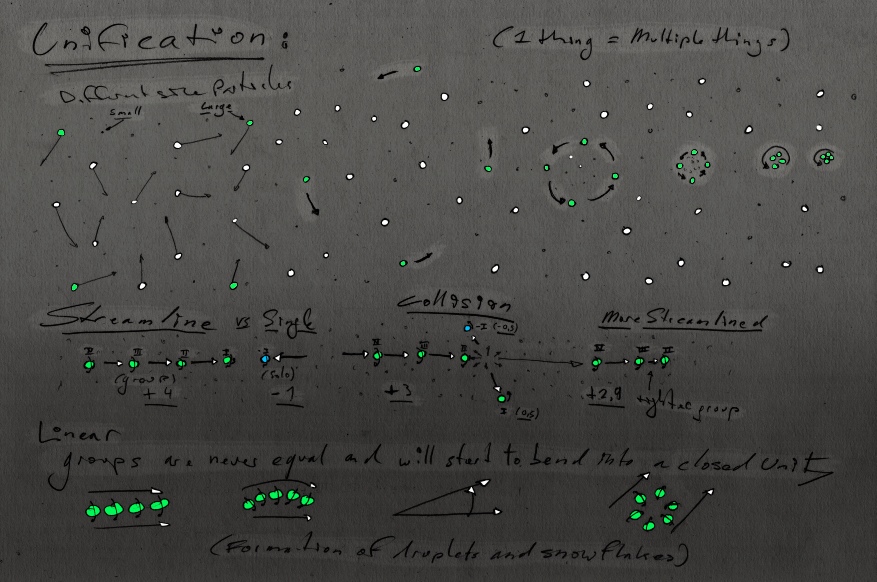 Unification:
(1 thing = Multiple things)
Different size Particles
Small
Large
Streamline vs Single
Collision
More Streamlined
IV III II I
(group)
+4
(solo)
-1
+3
-I (-0,5)
I (0,5)
+2,9
tighter group
Linear
groups are never equal and will start to bend into a closed Unit
(Formation of droplets and snowflakes)